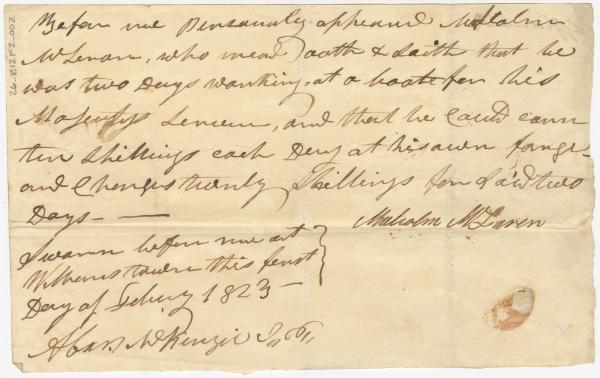 Before me Personally appeared Malcolm
McLenan, who mead oath & Saith that he
was two Days warking at a boate for his
Majestys Servien, and that he Could earn
ten Shillings each Day at his own forge
and Charges twenty Shillings for Said two
Days —
Malcolm McLaren
Swarn before me at
Williamstown this first
Day of Febury 1823 —
McKenzie J.P.
26-B12F2-002